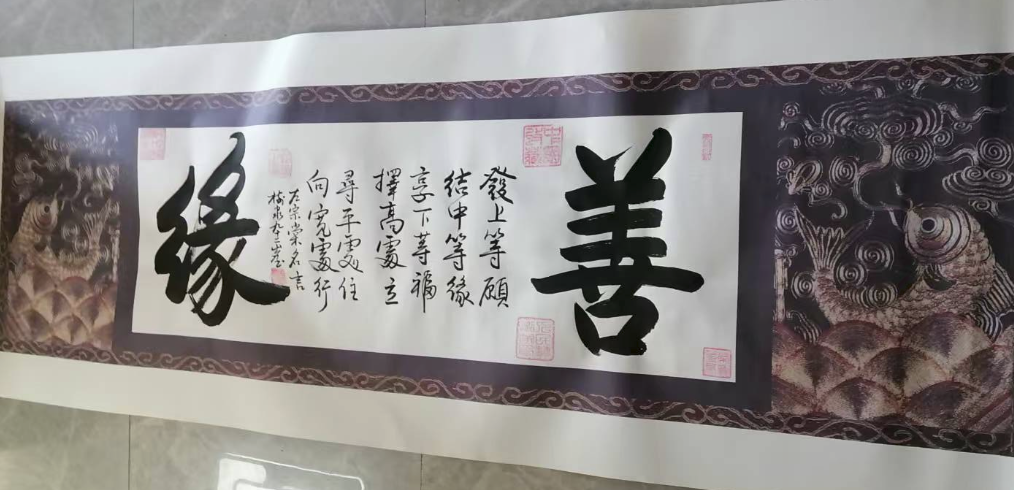 善
發上等願
結中等緣
享下等福
擇高處立
尋平處住
向寬處行
左宗棠名言
緣